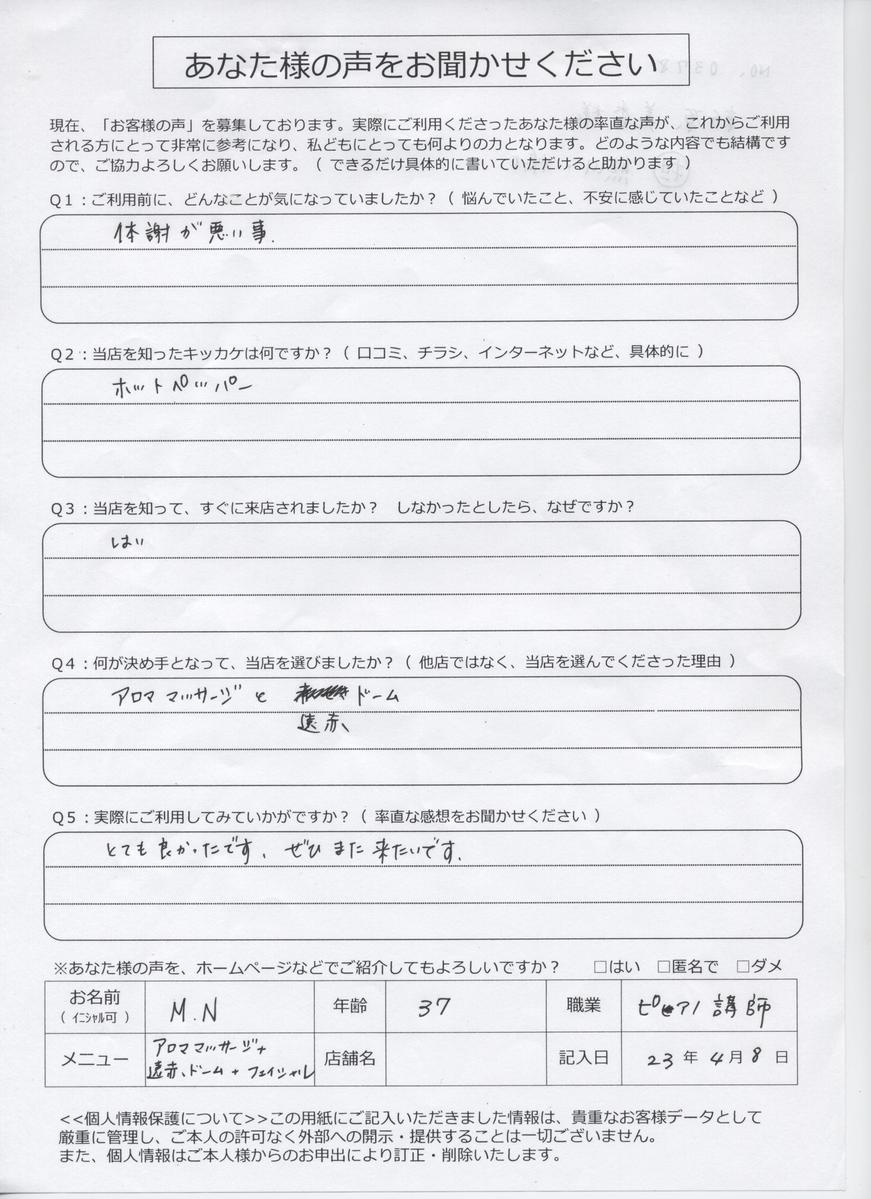 あなた様の声をお聞かせください
現在、「お客様の声」を募集しております。実際にご利用くださったあなた様の率直な声が、これからご利用
される方にとって非常に参考になり、私どもにとっても何よりの力となります。どのような内容でも結構です
ので、ご協力よろしくお願いします。（ できるだけ具体的に書いていただけると助かります ）
Q1：ご利用前に、どんなことが気になっていましたか？（ 悩んでいたこと、不安に感じていたことなど ）
体謝が悪い事.
Q2：当店を知ったキッカケは何ですか？（ 口コミ、チラシ、インターネットなど、具体的に ）
ホットペッパー
Q3：当店を知って、すぐに来店されましたか？　しなかったとしたら、なぜですか？
はい
Q4：何が決め手となって、当店を選びましたか？（ 他店ではなく、当店を選んでくださった理由 ）
アロママッサージと ドーム
遠赤、
Q5：実際にご利用してみていかがですか？（ 率直な感想をお聞かせください ）
とても良かったです、ぜひまた来たいです.
※あなた様の声を、ホームページなどでご紹介してもよろしいですか？　□はい　□匿名で　□ダメ
お名前 M.N 年齢 37 職業 ピアノ講師
（ ｲﾆｼｬﾙ可 ）
メニュー アロママッサージ+ 店舗名 記入日 23年4月8日
遠赤、ドーム + フェイシャル
<<個人情報保護について>>この用紙にご記入いただきました情報は、貴重なお客様データとして
厳重に管理し、ご本人の許可なく外部への開示・提供することは一切ございません。
また、個人情報はご本人様からのお申出により訂正・削除いたします。